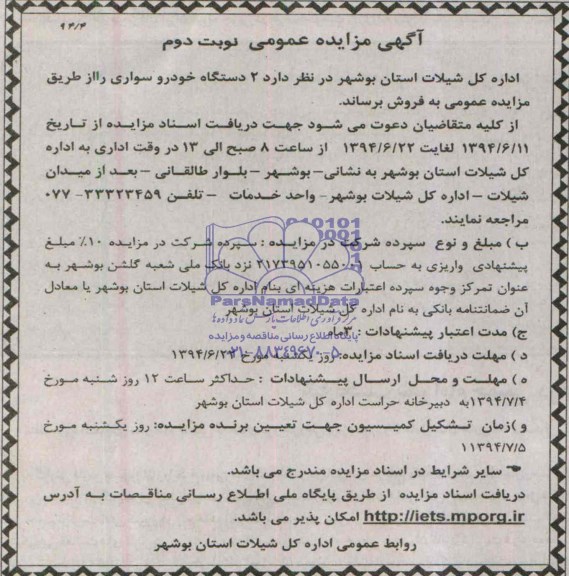 ۹۴/۴
آگهی مزایده عمومی نوبت دوم
اداره کل شیلات استان بوشهر در نظر دارد ۲ دستگاه خودرو سواری رااز طریق
مزایده عمومی به فروش برساند.
از کلیه متقاضیان دعوت می شود جهت دریافت اسناد مزایده از تاریخ
۱۳۹۴/۶/۱۱ لغایت ۱۳۹۴/۶/۲۲ از ساعت ۸ صبح الی ۱۳ در وقت اداری به اداره
کل شیلات استان بوشهر به نشانی– بوشهر – بلوار طالقانی – بعد از میدان
شیلات – اداره کل شیلات بوشهر- واحد خدمات – تلفن ۳۳۳۲۳۴۵۹- ۰۷۷
مراجعه نمایند.
ب ) مبلغ و نوع سپرده شرکت در مزایده : سپرده شرکت در مزایده ۱۰٪ مبلغ
پیشنهادی واریزی به حساب ۲۱۷۳۹۵۱۰۵۵۰۰۶ نزد بانک ملی شعبه گلشن بوشهر به
عنوان تمرکز وجوه سپرده اعتبارات هزینه ای بنام اداره کل شیلات استان بوشهر یا معادل
آن ضمانتنامه بانکی به نام اداره کل شیلات استان بوشهر
ج) مدت اعتبار پیشنهادات : ۳ماه
د ) مهلت دریافت اسناد مزایده: روز یکشنبه مورخ ۱۳۹۴/۶/۲۲
ه ) مهلت و محل ارسال پیشنهادات : حداکثر ساعت ۱۲ روز شنبه مورخ
۱۳۹۴/۷/۴به دبیرخانه حراست اداره کل شیلات استان بوشهر
و )زمان تشکیل کمیسیون جهت تعیین برنده مزایده: روز یکشنبه مورخ
۱۱۳۹۴/۷/۵
سایر شرایط در اسناد مزایده مندرج می باشد.
دریافت اسناد مزایده از طریق پایگاه ملی اطلاع رسانی مناقصات به آدرس
http://iets.mporg.ir امکان پذیر می باشد.
روابط عمومی اداره کل شیلات استان بوشهر
ParsNamadData
پایگاه اطلاع رسانی مناقصه و مزایده
۰۲۱-۸۸۳۴۹۶۷۰-۵